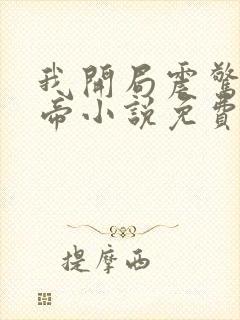 我開局震驚
帝小說免費
提摩西